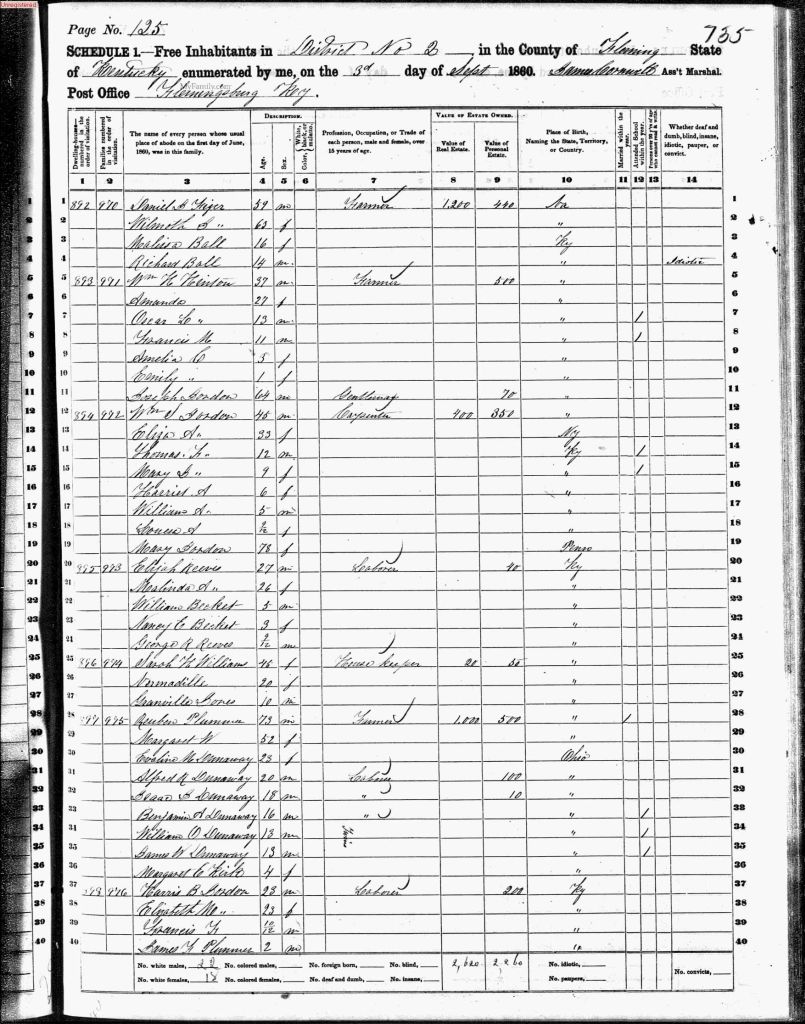 Unregistered
Page No. 125
735
SCHEDULE 1.—Free Inhabitants in District No 2 in the County of Fleming State
of Kentucky enumerated by me, on the 3d day of Sept 1860. Ass't Marshal.
Post Office Flemingsburg Ky.
Dwelling-houses— numbered in the order of visitation. Families numbered in the order of visitation. The name of every person whose usual place of abode on the first day of June, 1860, was in this family. DESCRIPTION. Age. Sex. Color, White, black, or mulatto. Profession, Occupation, or Trade of each person, male and female, over 15 years of age. VALUE OF ESTATE OWNED. Value of Real Estate. Value of Personal Estate. Place of Birth, Naming the State, Territory, or Country. Married within the year. Attended School within the year. Whether deaf and dumb, blind, insane, idiotic, pauper, or convict.
1 2 3 4 5 6 7 8 9 10 11 12 13 14
1 892 970 Daniel 59 m Farmer 1,200 440 Va 1
2 Wilmoth " 63 f " 2
3 Malissa Ball 16 f Ky 3
4 Richard Ball 14 m " Idiotic 4
5 893 971 Wm H Hinton 37 m Farmer 500 " 5
6 Amanda 27 f " 6
7 Oscar L " 13 m " 1 7
8 Francis M 11 m " 1 8
9 Amelia C 5 f " 9
10 Emily " 1 f " 10
11 Joseph Gordon 64 m Gentleman 70 " 11
12 894 972 Wm Gordon 45 m Carpenter 400 350 " 12
13 Eliza A " 33 f 13
14 Thomas F " 12 m Ky 1 14
15 Mary " 9 f " 1 15
16 Harriet A 6 f " 16
17 William A " 5 m " 17
18 Louisa A f " 18
19 Mary Gordon 78 f 19
20 895 973 Elijah Reeves 27 m Laborer 40 Ky 20
21 Malinda A " 26 f " 21
22 William Becket 5 m " 22
23 Nancy C Becket 3 f " 23
24 George R Reeves 2/12 m " 24
25 896 974 Sarah Williams 46 f House keeper 20 " 25
26 20 f " 26
27 Granville Jones 10 m " 27
28 897 975 Reuben Plummer 73 m Farmer 1,000 500 " 1 28
29 Margaret W 52 f " 29
30 Eveline M Dunaway 23 f Ohio 30
31 Alfred R Dunaway 20 m Laborer 100 " 31
32 Isaac Dunaway 18 m " 10 " 32
33 Benjamin A Dunaway 16 m " " 1 33
34 William O Dunaway 13 m Twins " 1 34
35 James W Dunaway 13 m " 1 35
36 Margaret C Kirk 4 f " 36
37 898 976 Harris B Gordon 23 m Laborer 200 Ky 37
38 Elizabeth M " 23 f " 38
39 Francis m " 39
40 James Plummer 2 m " 40
No. white males, 22 No. colored males, No. foreign born, No. blind, 2,620 2260 No. idiotic, No. convicts,
No. white females, 18 No. colored females, No. deaf and dumb, No. insane, No. paupers,